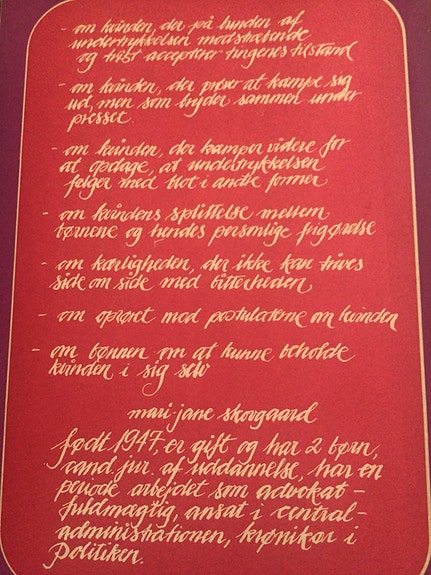 - om kvinden, der på bunden af
undertrykkelsen modstræbende
og træt accepterer tingenes tilstand
- om kvinden, der prøver at kæmpe sig
ud, men som bryder sammen under
presset
- om kvinden, der kæmper videre for
at opdage, at undertrykkelsen
følger med blot i andre former
- om kvindens splittelse mellem
børnene og hendes personlige frigørelse
- om kærligheden, der ikke kan trives
side om side med bitterheden
- om oprøret mod postulaterne om kvinden
- om bønnen om at kunne beholde
kvinden i sig selv
mari-jane skovgaard
født 1947, er gift og har 2 børn,
cand. jur. af uddannelse, har en
periode arbejdet som advokat-
fuldmægtig, ansat i central-
administrationen, kronikør i
Politiken.